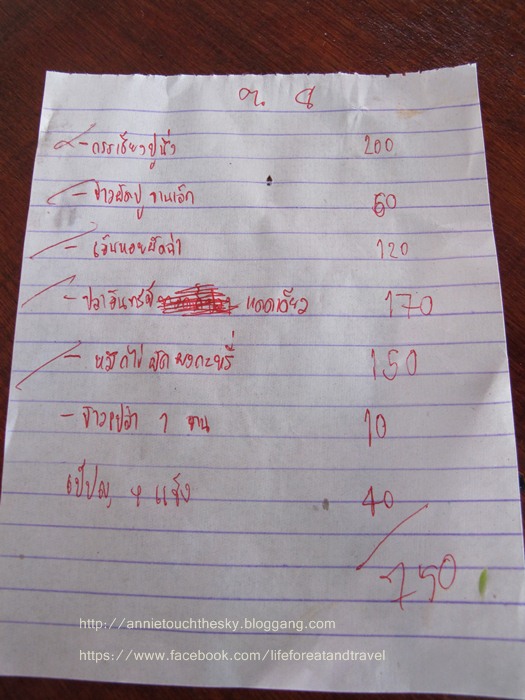 ต. 8
- กรรเชียงปูนึ่ง 200
- ข้าวผัดปู จานเล็ก 60
- เอ็นหอยผัดฉ่า 120
- ปลาอินทรีย์ แดดเดียว 170
- หมึกไข่ผัดผงกะหรี่ 150
- ข้าวเปล่า 1 จาน 10
เป๊ปซี่ + แข็ง 40
750
http://annietouchthesky.bloggang.com
https://www.facebook.com/lifeforeatandtravel